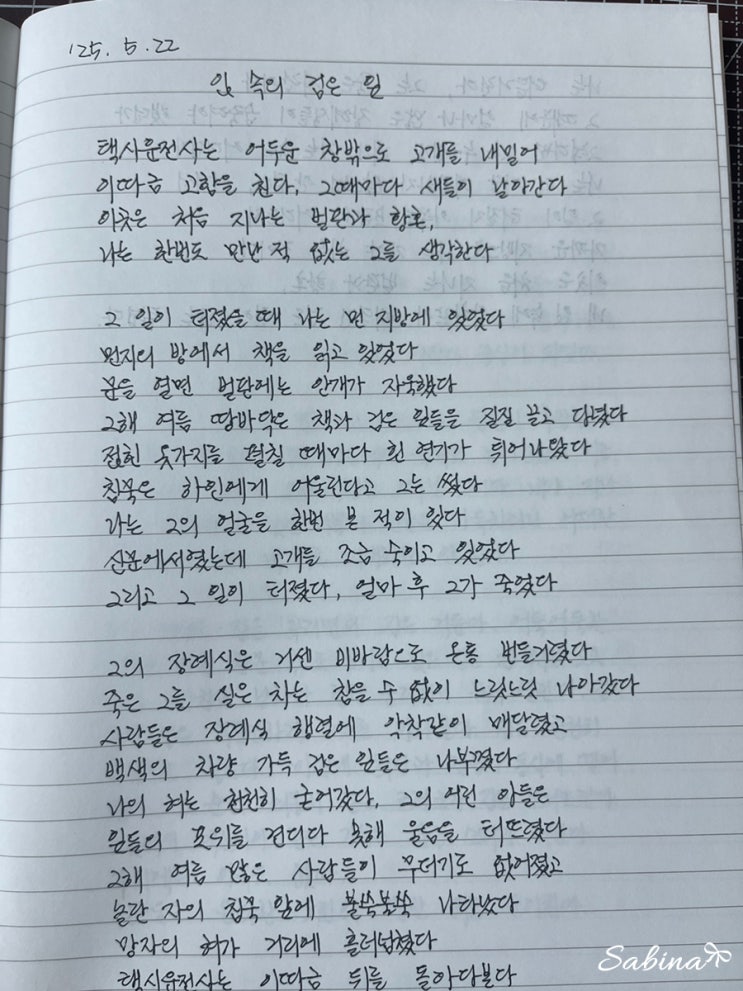 '25. 5. 22
입 속의 검은 잎
택시운전사는 어두운 창밖으로 고개를 내밀어
이따금 고함을 친다, 그때마다 새들이 날아간다
이곳은 처음 지나는 벌판과 황혼,
나는 한번도 만난 적 없는 그를 생각한다
그 일이 터졌을 때 나는 먼 지방에 있었다
먼지의 방에서 책을 읽고 있었다
문을 열면 벌판에는 안개가 자욱했다
그해 여름 땅바닥은 책과 검은 잎들을 질질 끌고 다녔다
접힌 옷가지를 펼칠 때마다 흰 연기가 튀어나왔다
침묵은 하인에게 어울린다고 그는 썼다
나는 그의 얼굴을 한번 본 적이 있다
신문에서였는데 고개를 조금 숙이고 있었다
그리고 그 일이 터졌다, 얼마 후 그가 죽었다
그의 장례식은 거센 비바람으로 온통 번들거렸다
죽은 그를 실은 차는 참을 수 없이 느릿느릿 나아갔다
사람들은 장례식 행렬에 악착같이 매달렸고
백색의 차량 가득 검은 잎들은 나부꼈다
나의 혀는 천천히 굳어갔다, 그의 어린 아들은
잎들의 포위를 견디다 못해 울음을 터뜨렸다
그해 여름 많은 사람들이 무더기로 없어졌고
놀란 자의 침묵 앞에 불쑥불쑥 나타났다
망자의 혀가 거리에 흘러넘쳤다
택시운전사는 이따금 뒤를 돌아다본다
Sabina